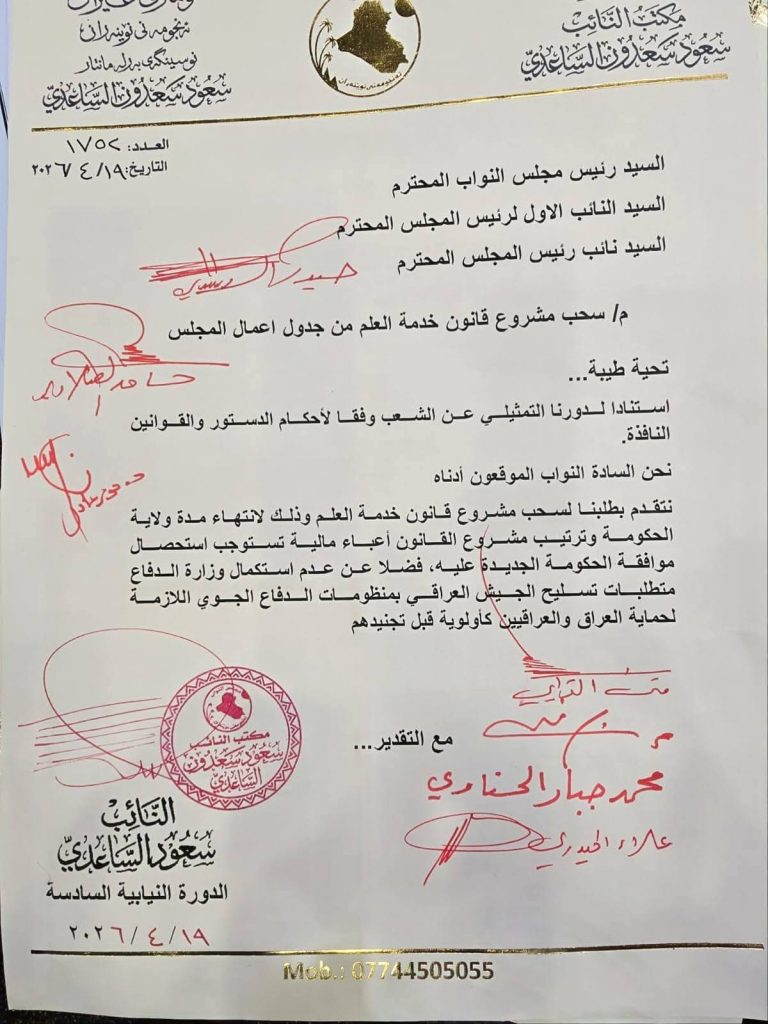 مكتب النائب
سعود سعدون الساعدي
ئەنجومەنی نوینەران
نوسینگەی پەرلەمانتار
سعود سعدون الساعدي
العدد: ١٧٥٢
التاريخ: ١٩/ ٤ / ٢٠٢٦
السيد رئيس مجلس النواب المحترم
السيد النائب الاول لرئيس المجلس المحترم
السيد نائب رئيس المجلس المحترم
م/ سحب مشروع قانون خدمة العلم من جدول اعمال المجلس
تحية طيبة...
استنادا لدورنا التمثيلي عن الشعب وفقا لأحكام الدستور والقوانين
النافذة.
نحن السادة النواب الموقعون أدناه
نتقدم بطلبنا لسحب مشروع قانون خدمة العلم وذلك لانتهاء مدة ولاية
الحكومة وترتيب مشروع القانون أعباء مالية تستوجب استحصال
موافقة الحكومة الجديدة عليه، فضلا عن عدم استكمال وزارة الدفاع
متطلبات تسليح الجيش العراقي بمنظومات الدفاع الجوي اللازمة
لحماية العراق والعراقيين كأولوية قبل تجنيدهم
مع التقدير...
محمد جبار الحسناوي
علاء الحيدري
مكتب النائب
سعود سعدون
الساعدي
النائب
سعود الساعدي
الدورة النيابية السادسة
١٩/ ٤ / ٢٠٢٦
Mob.: 07744505055